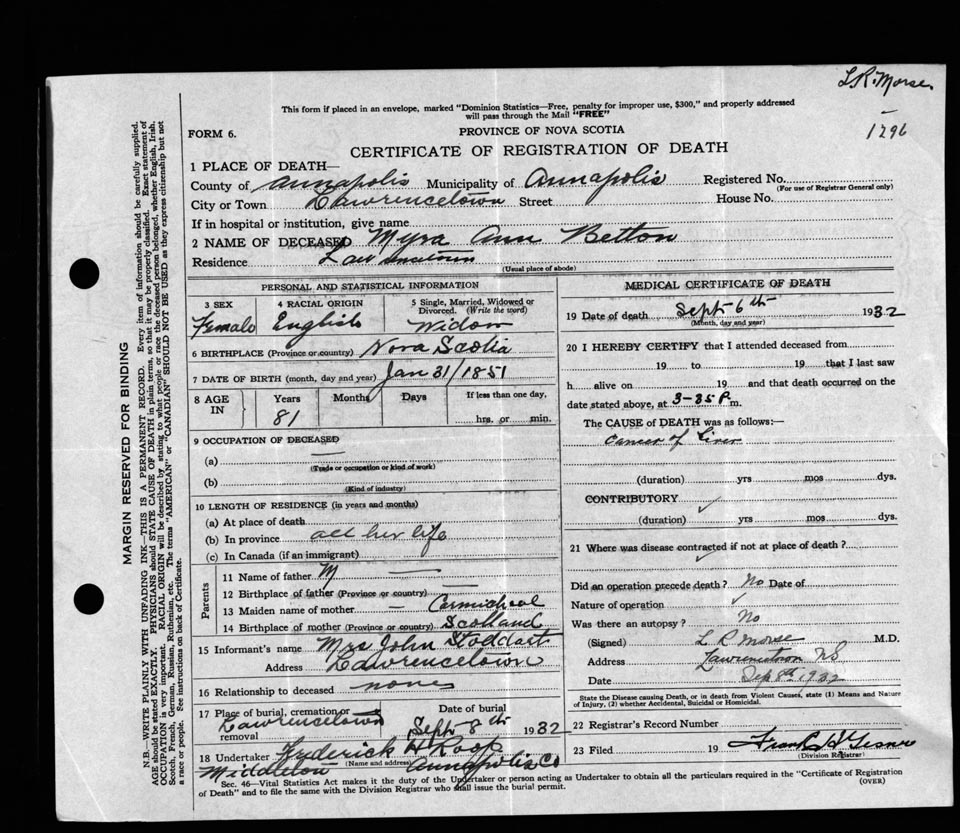 L.R. Morse
1296
This form if placed in an envelope, marked "Dominion Statistics—Free, penalty for improper use, $300," and properly addressed
will pass through the Mail "FREE"
FORM 6.
PROVINCE OF NOVA SCOTIA
CERTIFICATE OF REGISTRATION OF DEATH
1 PLACE OF DEATH—
County of Annapolis Municipality of Annapolis Registered No.
(For use of Registrar General only)
City or Town Lawrencetown Street House No.
If in hospital or institution, give name
2 NAME OF DECEASED Myra Ann Betton
Residence Lawrencetown
(Usual place of abode)
PERSONAL AND STATISTICAL INFORMATION
3 SEX
Female
4 RACIAL ORIGIN
English
5 Single, Married, Widowed or
Divorced. (Write the word)
Widow
6 BIRTHPLACE (Province or country) Nova Scotia
7 DATE OF BIRTH (month, day and year) Jan 31/1851
8 AGE IN
Years
81
Months
Days
If less than one day,
hrs. or min.
9 OCCUPATION OF DECEASED
(a) —
(Trade or occupation or kind of work)
(b)
(Kind of industry)
10 LENGTH OF RESIDENCE (in years and months)
(a) At place of death
(b) In province all her life
(c) In Canada (if an immigrant)
Parents
11 Name of father M —
12 Birthplace of father (Province or country) —
13 Maiden name of mother — Carmicheal
14 Birthplace of mother (Province or country) Scotland
15 Informant's name Mrs John Stoddart
Address Lawrencetown
16 Relationship to deceased none
17 Place of burial, cremation or
removal Lawrencetown
Date of burial
Sept 8th 1932
18 Undertaker Frederick H Roop
(Name and address)
Middleton Annapolis Co
MEDICAL CERTIFICATE OF DEATH
19 Date of death Sept 6th 1932
(Month, day and year)
20 I HEREBY CERTIFY that I attended deceased from
19 to 19 that I last saw
h alive on 19 and that death occurred on the
date stated above, at 3-35 P m.
The CAUSE of DEATH was as follows:—
Cancer of Liver
(duration) yrs mos dys.
CONTRIBUTORY
(duration) yrs mos dys.
21 Where was disease contracted if not at place of death?
Did an operation precede death? No Date of
Nature of operation
Was there an autopsy? No
(Signed) L R Morse M.D.
Address Lawrencetown NS
Date Sep 8th 1932
State the Disease causing Death, or in death from Violent Causes, state (1) Means and Nature
of Injury, (2) whether Accidental, Suicidal or Homicidal.
22 Registrar's Record Number
23 Filed 19
(Division Registrar)
Sec. 46—Vital Statistics Act makes it the duty of the Undertaker or person acting as Undertaker to obtain all the particulars required in the "Certificate of Registration
of Death" and to file the same with the Division Registrar who shall issue the burial permit.
(OVER)
MARGIN RESERVED FOR BINDING
N.B.—WRITE PLAINLY WITH UNFADING INK—THIS IS A PERMANENT RECORD. Every item of information should be carefully supplied.
AGE should be stated EXACTLY. PHYSICIANS should STATE CAUSE OF DEATH in plain terms, so that it may be properly classified. Exact statement of
OCCUPATION is very important. RACIAL ORIGIN will be described by stating to what people or race the deceased person belonged, whether English, Irish,
Scotch, French, German, Russian, Ruthenian, etc. The terms "AMERICAN" or "CANADIAN" SHOULD NOT BE USED as they express citizenship but not
a race or people. See instructions on back of Certificate.